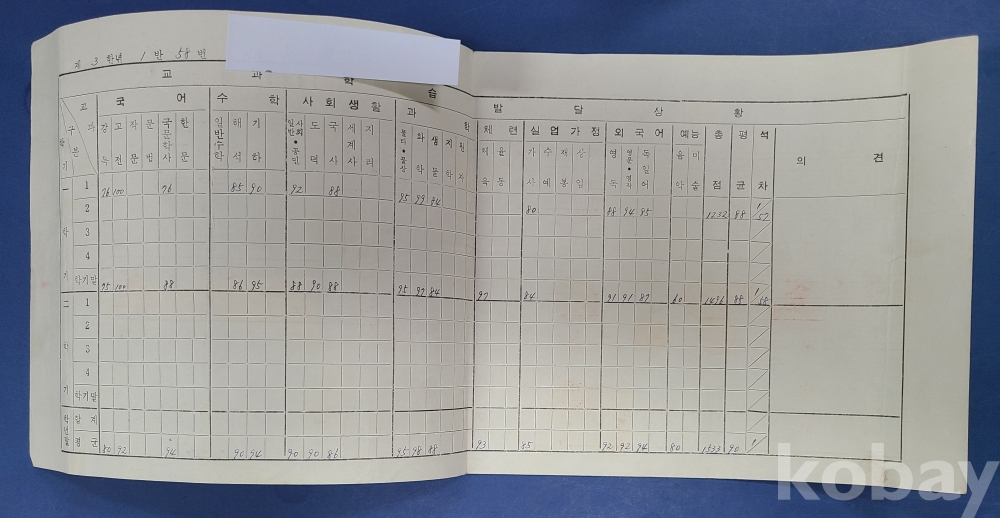 제 3 학년 1 반 58 번
교 과 학 습 발 달 상 황
교과 구분 학기
국 어 수 학 사 회 생 활 과 학 체 련 실 업 가 정 외 국 어 예능 총점 평균 석차 의 견
강독 고전 작문 문법 국문학사 한문 일반수학 해석 기하 일반사회·공민 도덕 국사 세계사 지리 물리·물상 화학 생물 지학 체육 가사 수예 재봉 영독 독일어 음악 미술
一 학 기
1 76 100 76 85 90 92 88 95 99 84
2 80 88 94 95 1232 88 1/57
3
4
학기말 75 100 88 86 95 88 90 88 95 97 84 97 84 91 91 87 80 1496 88 1/58
二 학 기
1
2
3
4
학기말
학년말
합 계
평 균 80 92 94 90 94 90 90 86 95 98 88 93 85 92 92 94 80 1533 90
kobay